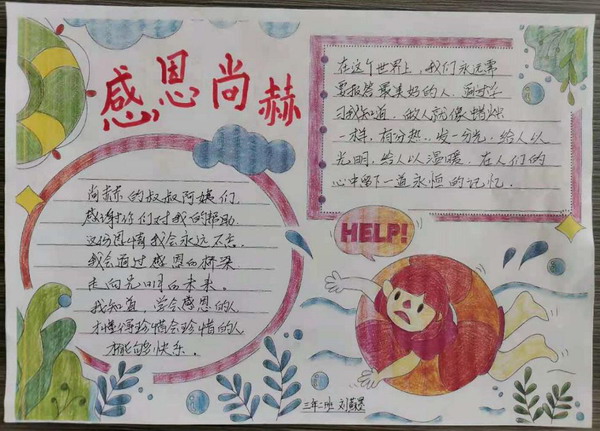 感恩尚赫
在这个世界上,我们永远需
要报答最美好的人,
习我知道,做人就像蜡烛
一样,有分热,发一分光,给人以
光明,给人以温暖.在人们的
心中留下一道永恒的记忆.
尚赫的叔叔阿姨们
感谢你们对我的帮助
这份恩情我会永远不忘.
我会通过感恩的桥梁
走向光明的未来.
我知道,学会感恩的人
才懂得珍惜会珍惜的人
才能够快乐.
HELP!
三年二班